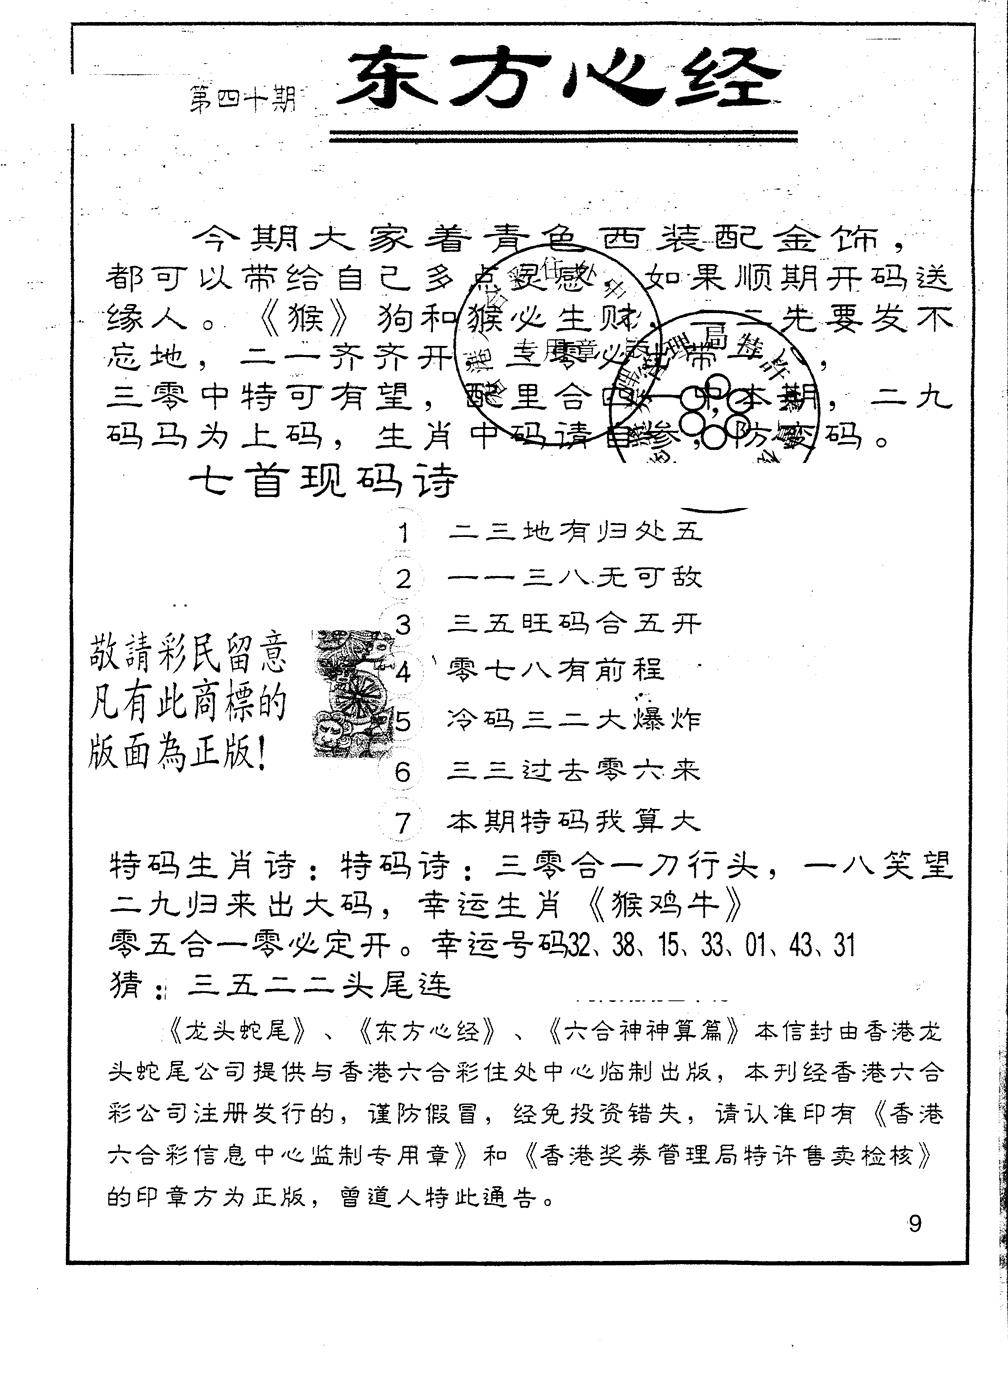 第四十期
东方心经
今期大家着青色西装配金饰，
都可以带给自己多点灵感，如果顺期开码送
缘人。《猴》狗和猴必生财，一二先要发不
忘地，二一齐齐开，三零必带
三零中特可有望，配里合四一中本期，二九
码马为上码，生肖中码请自参，防变码。
七首现码诗
1 二三地有归处五
2 一一三八无可敌
3 三五旺码合五开
4 零七八有前程
5 冷码三二大爆炸
6 三三过去零六来
7 本期特码我算大
敬請彩民留意
凡有此商標的
版面為正版！
特码生肖诗：特码诗：三零合一刀行头，一八笑望
二九归来出大码，幸运生肖《猴鸡牛》
零五合一零必定开。幸运号码32、38、15、33、01、43、31
猜：三五二二头尾连
《龙头蛇尾》、《东方心经》、《六合神神算篇》本信封由香港龙
头蛇尾公司提供与香港六合彩住处中心临制出版，本刊经香港六合
彩公司注册发行的，谨防假冒，经免投资错失，请认准印有《香港
六合彩信息中心监制专用章》和《香港奖券管理局特许售卖检核》
的印章方为正版，曾道人特此通告。
9